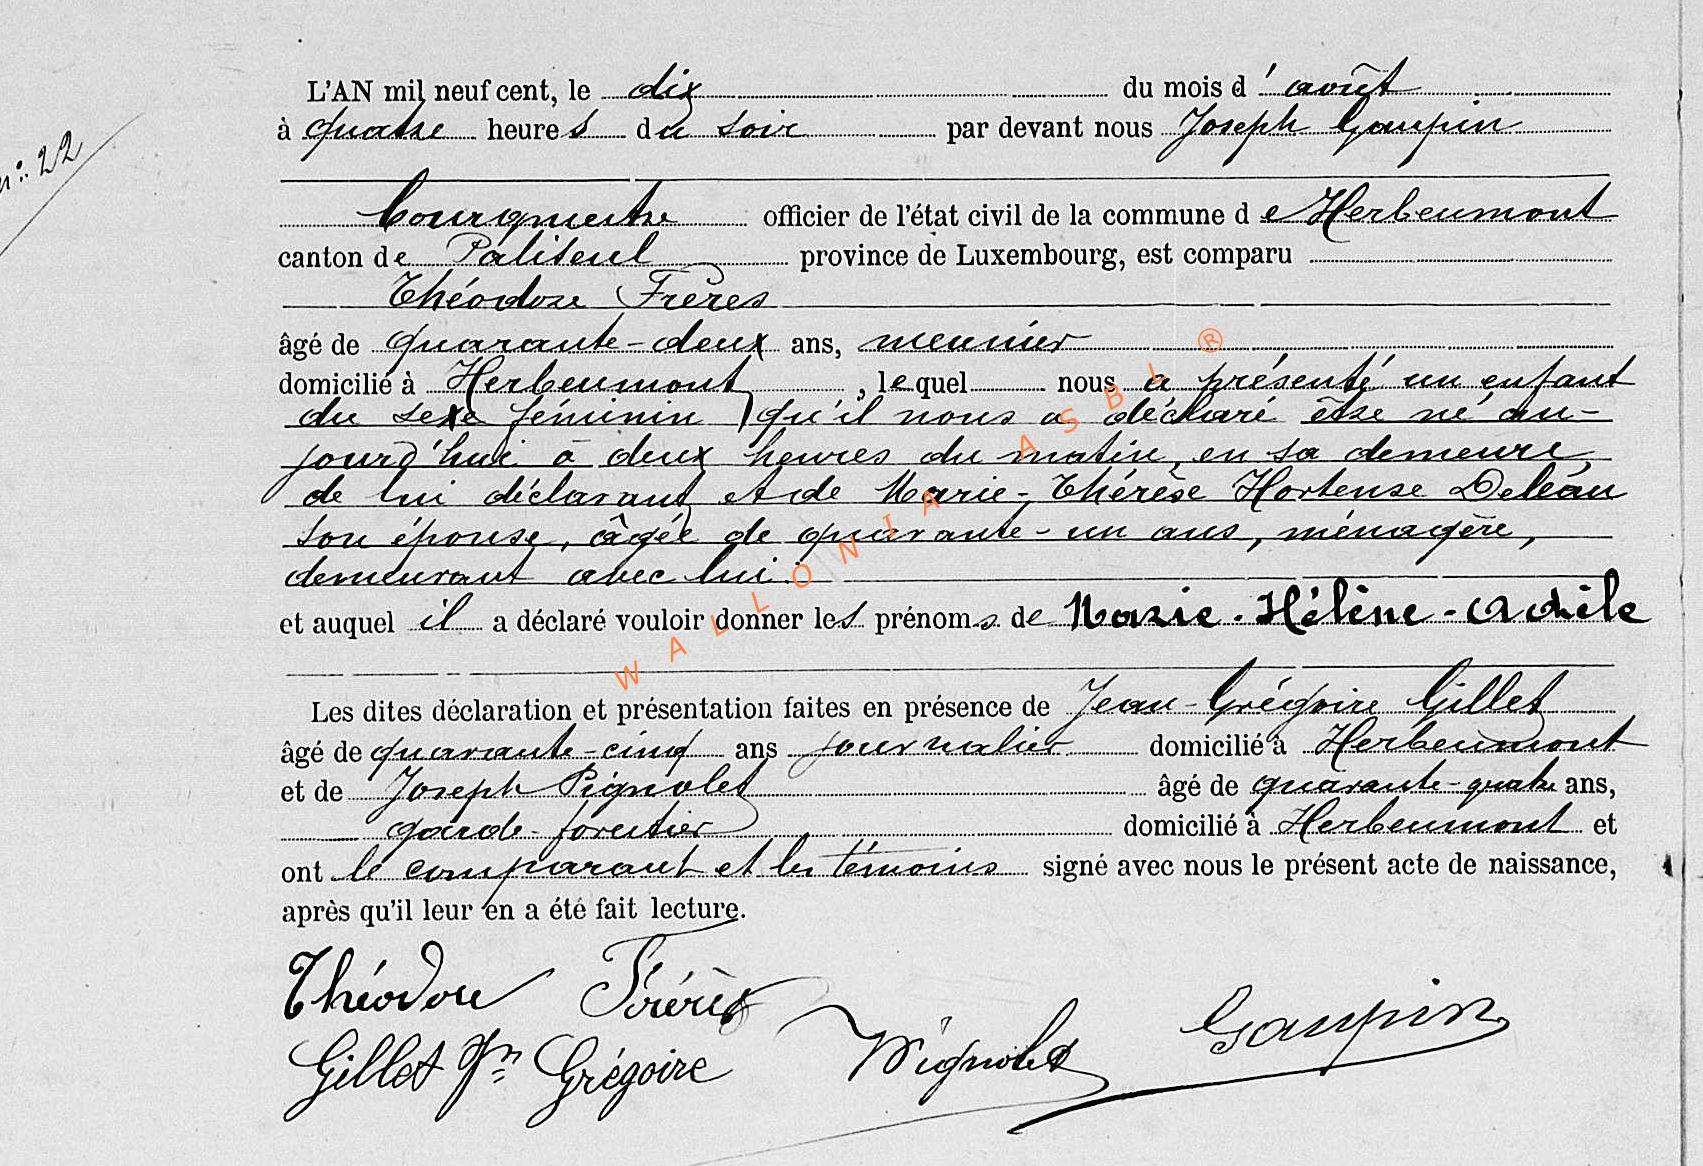 n° 22
L'AN mil neuf cent, le dix du mois d'août
à quatre heures du soir par devant nous Joseph Gaupin
bourgmestre officier de l'état civil de la commune de Herbeumont
canton de Paliseul province de Luxembourg, est comparu
Théodore Frères
âgé de quarante-deux ans, meunier
domicilié à Herbeumont, lequel nous a présenté un enfant
du sexe féminin qu'il nous a déclaré être né au-
jourd'hui à deux heures du matin, en sa demeure,
de lui déclarant et de Marie-Thérèse Hortense Deléau
son épouse, âgée de quarante-un ans, ménagère,
demeurant avec lui.
et auquel il a déclaré vouloir donner les prénoms de Marie-Hélène-
Les dites déclaration et présentation faites en présence de Jean-Grégoire Gillet
âgé de quarante-cinq ans journalier domicilié à Herbeumont
et de Joseph Pignolet âgé de quarante-quatre ans,
garde-forestier domicilié à Herbeumont et
ont le comparant et les témoins signé avec nous le présent acte de naissance,
après qu'il leur en a été fait lecture.
Théodore Frérès
Gillet Jn Grégoire Pignolet Gaupin
WALLONIA ASBL ®